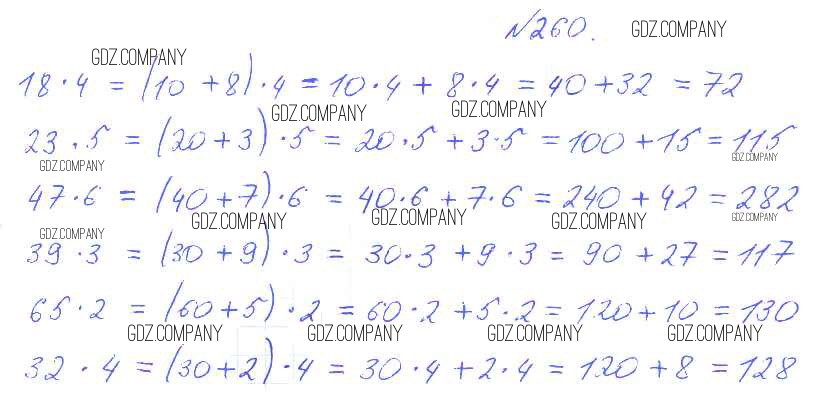 №260. GDZ.COMPANY
GDZ.COMPANY
18·4 = (10+8)·4 = 10·4 + 8·4 = 40+32 = 72
GDZ.COMPANY GDZ.COMPANY
23·5 = (20+3)·5 = 20·5 + 3·5 = 100+15 = 115
GDZ.COMPANY GDZ.COMPANY
47·6 = (40+7)·6 = 40·6 + 7·6 = 240+42 = 282
GDZ.COMPANY GDZ.COMPANY GDZ.COMPANY GDZ.COMPANY
GDZ.COMPANY
39·3 = (30+9)·3 = 30·3 + 9·3 = 90+27 = 117
65·2 = (60+5)·2 = 60·2 + 5·2 = 120+10 = 130
GDZ.COMPANY GDZ.COMPANY GDZ.COMPANY GDZ.COMPANY
32·4 = (30+2)·4 = 30·4 + 2·4 = 120+8 = 128